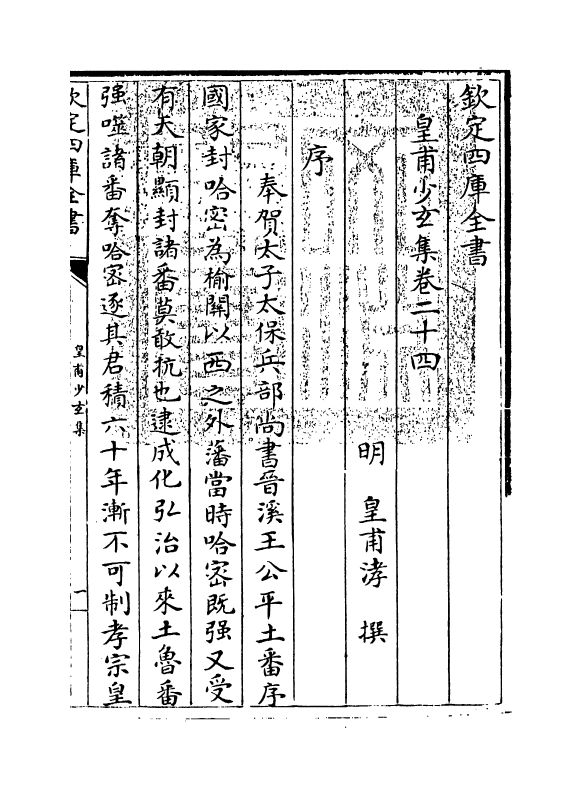 欽定四庫全書
皇甫少玄集卷二十四
明 皇甫涍 撰
序
奉賀太子太保兵部尚書晉溪王公平土番序
國家封哈密為榆關以西之外藩當時哈密既强又受
有天朝顯封諸番莫敢抗也逮成化弘治以來土魯番
强噬諸番奪哈密逐其君積六十年漸不可制孝宗皇
欽定四庫全書
皇甫少玄集
一